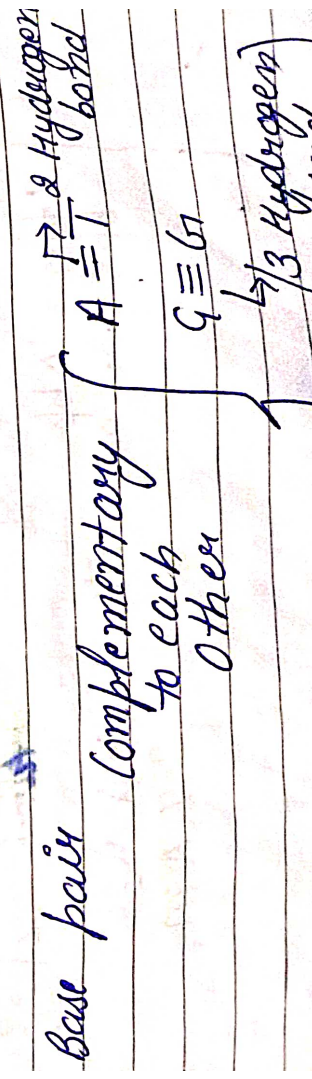 Base pair
Complementary
to each
other
A = T → 2 Hydrogen
bond
G ≡ G
↳ 3 Hydrogen